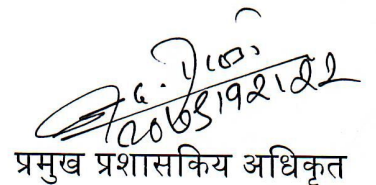 २०७९।१२।२२
प्रमुख प्रशासकिय अधिकृत